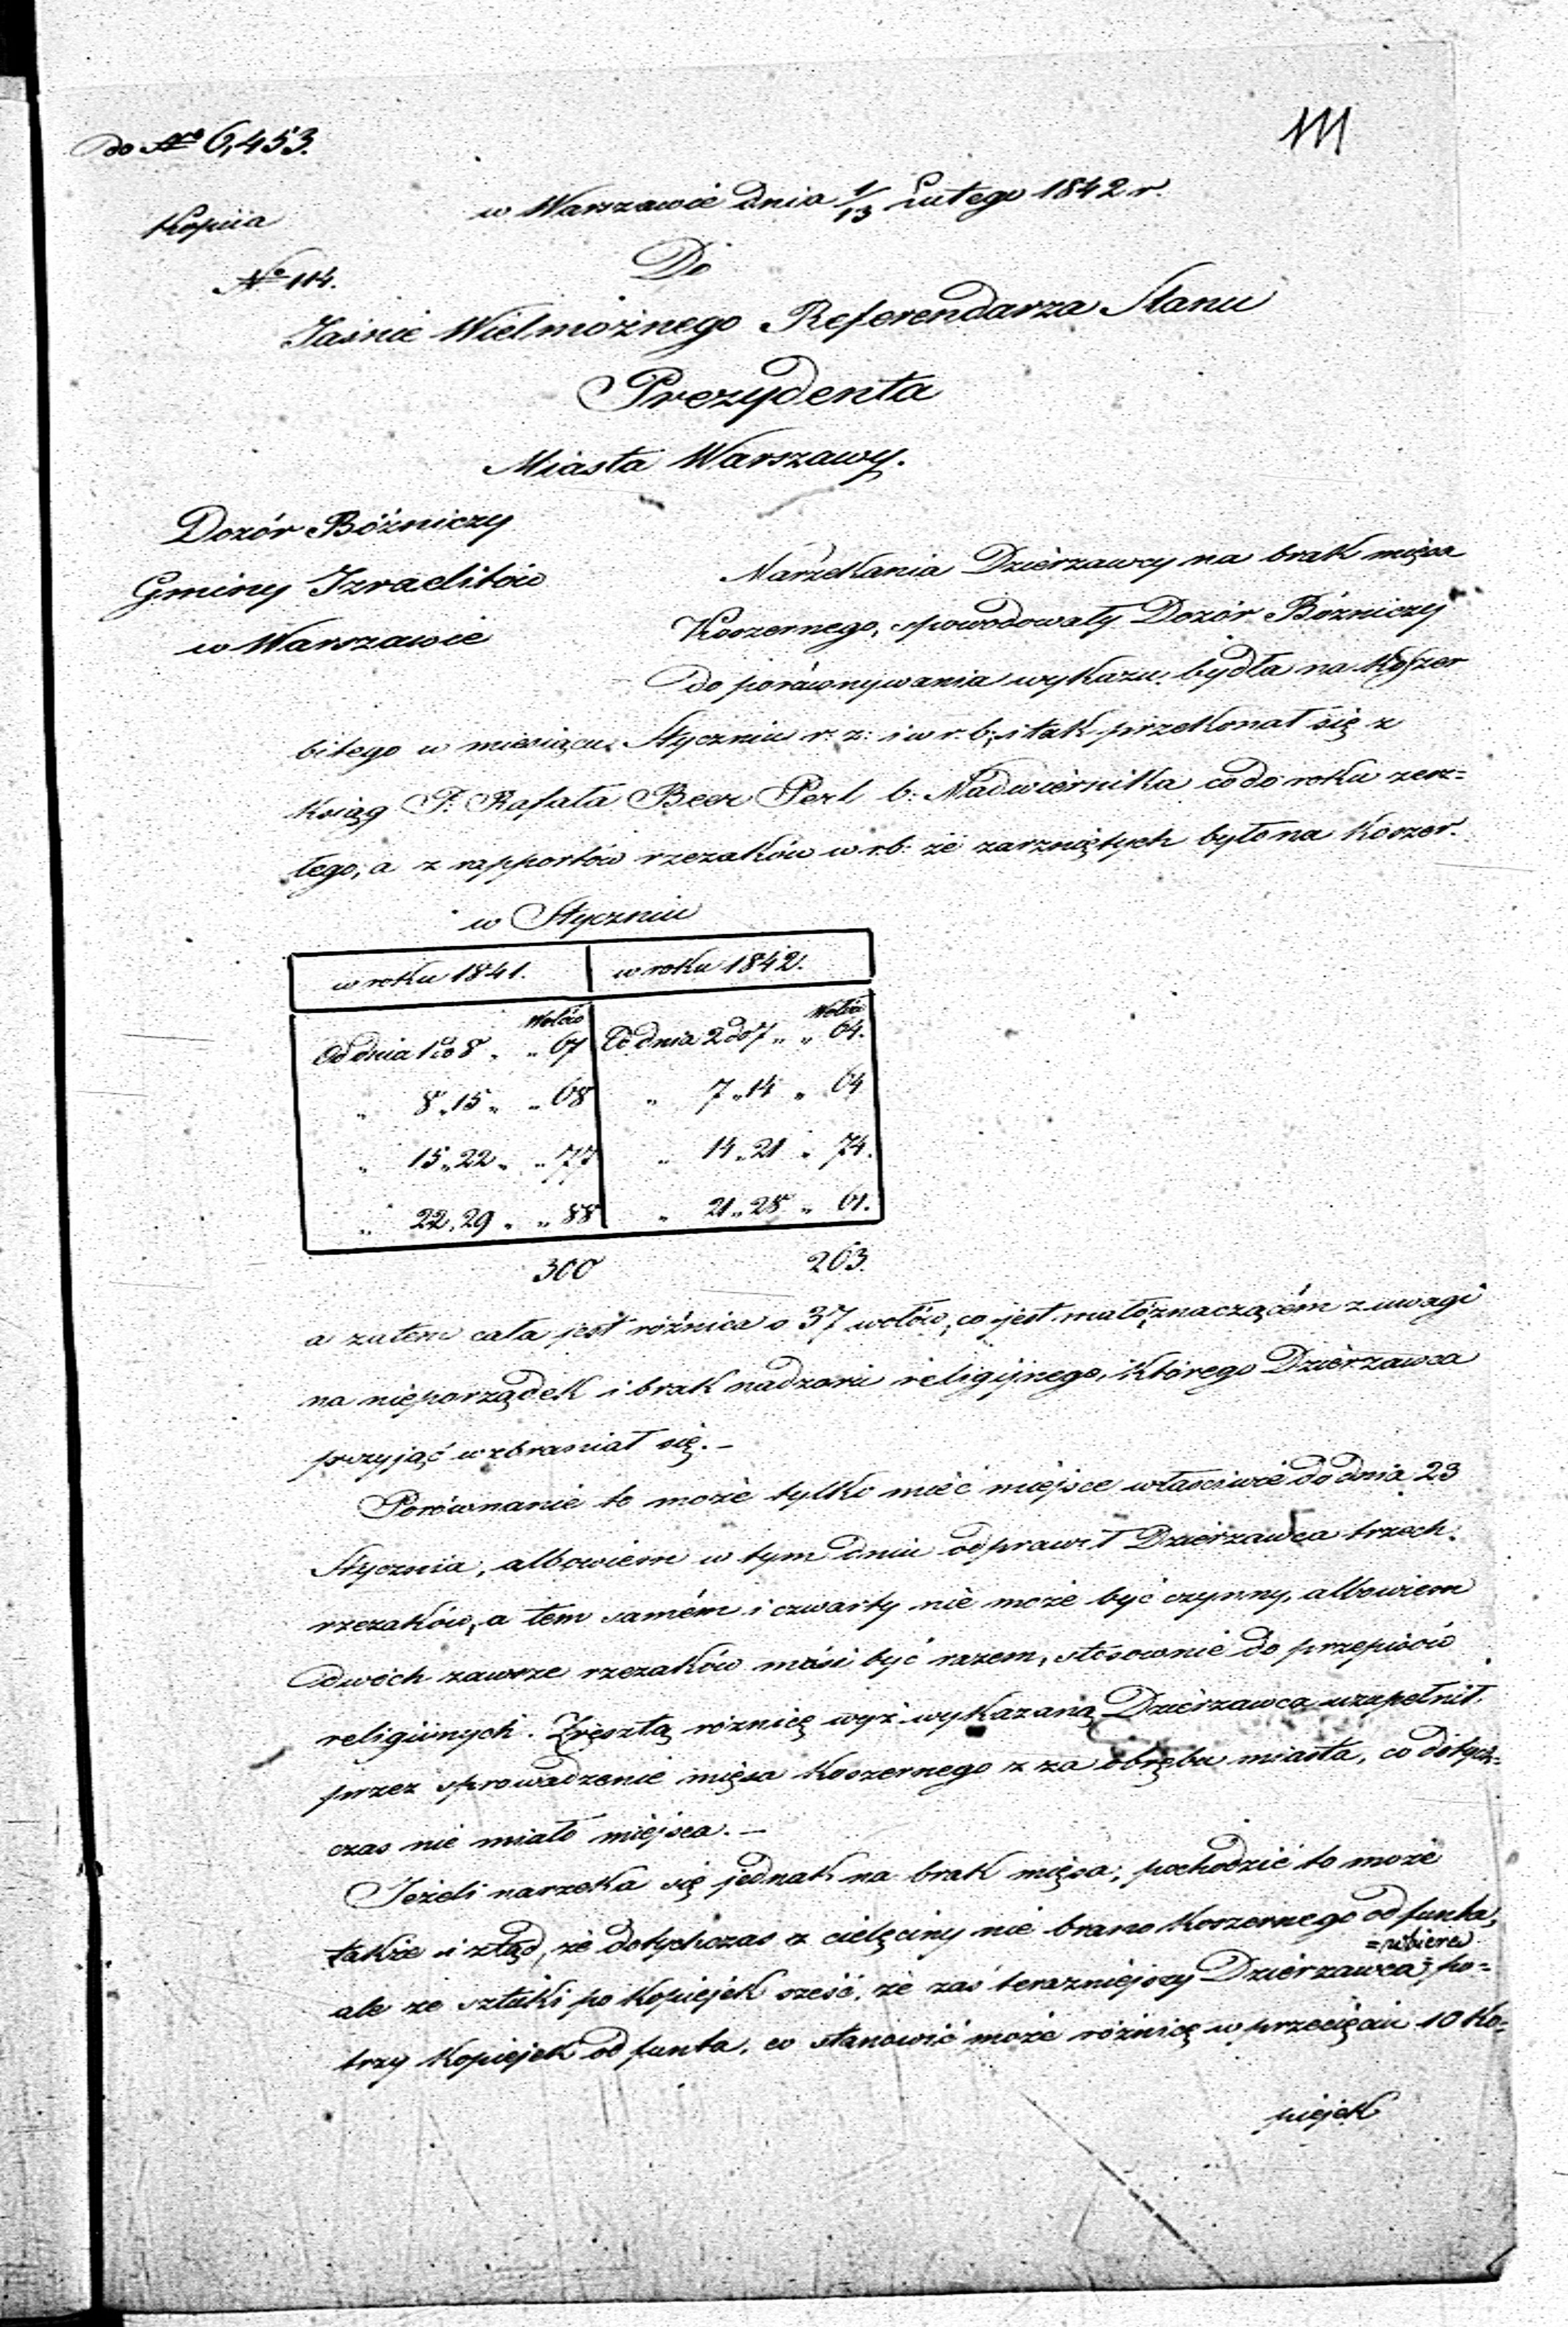 do No 6,453.
111
Kopiia
w Warszawie dnia 1/13 Lutego 1842 r.
No 114.
Do
Jaśnie Wielmożnego Referendarza Stanu
Prezydenta
Miasta Warszawy.
Dozór Bóżniczy
Gminy Izraelitów
w Warszawie
Narzekania Dzierzawcy na brak mięsa
Koszernego, spowodowały Dozór Bóżniczy
do porównywania wykazu bydła na koszer
bitego w miesiącu Styczniu r. z: i w r. b; i tak przekonał się z
Ksiąg P. Rafała Beer Perl b: Nadwiernika co do roku zesz=
łego, a z rapportów rzezaków w r.b: że zarzniętych było na Koszer.
w Styczniu
w roku 1841. w roku 1842.
Wołów Wołów
Od dnia 1 do 8 „ „ 67 Od dnia 2 do 7 „ „ 64.
„ 8 „ 15 „ „ 68 „ 7 „ 14 „ 64
„ 15 „ 22 „ „ 77 „ 14 „ 21 „ 74.
„ 22 „ 29 „ „ 88 „ 21 „ 28 „ 61.
300 263.
a zatem cała jest różnica o 37 wołów, co jest małoznaczącém z uwagi
na nieporządek i brak nadzoru religijnego, którego Dzierzawca
przyjąć wzbraniał się. –
Porównanie to może tylko mieć miejsce właściwie do dnia 23
Stycznia, albowiem w tym dniu odprawił Dzierzawca trzech
rzezaków, a tem samém i czwarty nie może być czynny, albowiem
dwóch zawsze rzezaków musi być razem, stosownie do przepisów
religiinych. Zresztą różnicę wyż wykazaną Dzierzawca uzupełnił
przez sprowadzenie mięsa Koszernego z za obrębu miasta, co dotych=
czas nie miało miejsca. –
Jeżeli narzeka się jednak na brak mięsa, pochodzić to może
także i ztąd, że dotychczas z cielęciny nie brano Koszernego od funta,
=pobiera
ale ze sztuki po Kopiejek sześć, że zaś teraźniejszy Dzierzawca = po=
trzy Kopiejek od funta, co stanowić może różnicę w przecięciu 10 Ko=
piejek